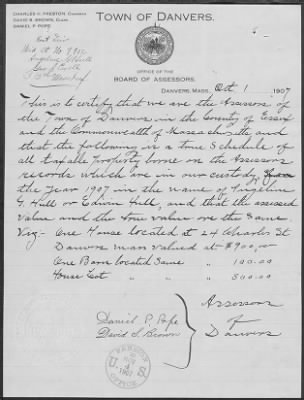 CHARLES H. PRESTON, CHAIRMAN
DAVID S. BROWN, CLERK
DANIEL P. POPE
TOWN OF DANVERS.
OFFICE OF THE
BOARD OF ASSESSORS.
DANVERS, MASS. Oct 1 1907
This is to certify that we are the Assessors of
the Town of Danvers, in the County of Essex
and the Commonwealth of Massachusetts and
that the following is a true Schedule of
all taxable Property borne on the Assessors
records which are in our custody, for
the Year 1907 in the name of Angeline
G. Hull or Edwin Hull, and that the assessed
value and the true value are the same.
Viz- One House located at 24 Charles St
Danvers Mass valued at $900,00
One Barn located Same " 100.00
House Lot " 500.00
Assessors
of
Danvers
Daniel P. Pope
David S. Brown
U.S.
4
1907
OFFICE